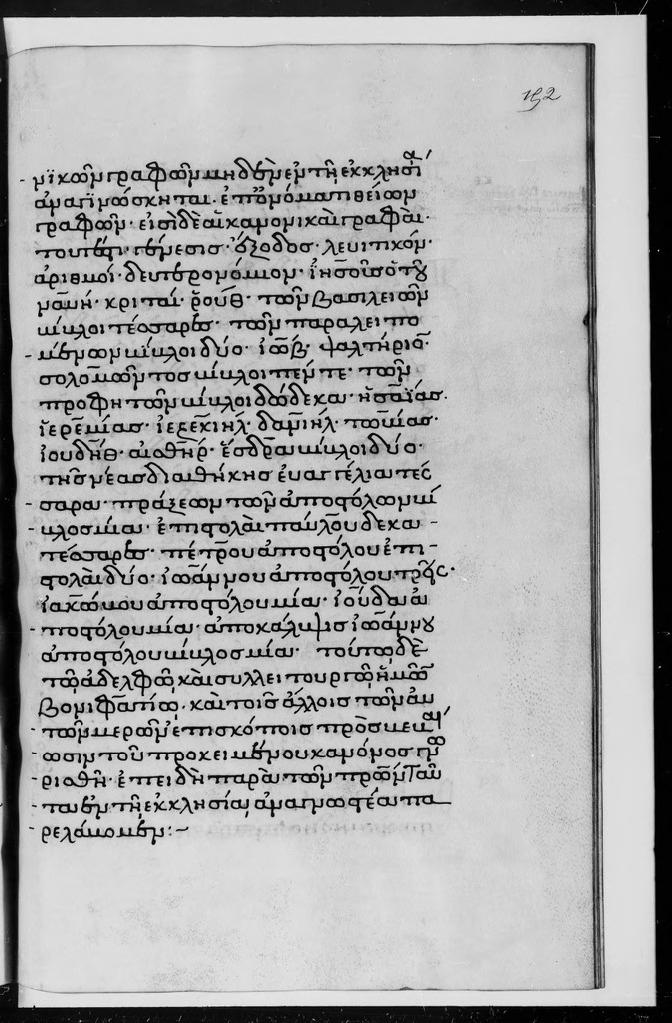 192
νϊκῶν γραφῶν μηδὲν ἐν τῆ ἐκκλησία
ἀναγινώσκηται· ἐπ' ὀνόματι θείων
γραφῶν· εἰσὶ δὲ αἱ κανονικαὶ γραφαὶ·
τουτέστι· γένεσις· ἔξοδος· λευιτικόν·
ἀριθμοί· δευτερονόμιον· ἰησοῦς ὁ τοῦ
ναυῆ· κριταί· ῥούθ· τῶν βασιλειῶν
βίβλοι τέσσαρες· τῶν παραλειπο
μένων βίβλοι δύο· ἰώβ· ψαλτήριον·
σολομῶντος βίβλοι πέντε· τῶν
προφητῶν βίβλοι δώδεκα· ἡσαΐας·
ἱερεμίας· ἰεζεκιήλ· δανιήλ· τωβίας·
ἰουδήθ· αἰσθήρ· ἔσδρα βίβλοι δύο·
τῆς νέας διαθήκης εὐαγγέλια τέσ
σαρα· πράξεων τῶν ἀποστόλων βί
βλος μία· ἐπιστολαὶ παύλου δεκα
τέσσαρες· πέτρου ἀποστόλου ἐπι
στολαὶ δύο· ἰωάννου ἀποστόλου τρεῖς·
ἰακώβου ἀποστόλου μία· ἰούδα ἀ
ποστόλου μία· ἀποκάλυψις ἰωάννου
ἀποστόλου βίβλος μία· τοῦτο δὲ
τῶ ἀδελφῶ καὶ συλλειτουργῶ ἡμῶν
βονιφατίω· καὶ τοῖς ἄλλοις τῶν αὐ
τῶν μερῶν ἐπισκόποις πρὸς βεβαί
ωσιν τοῦ προκειμένου κανόνος γνω
ρισθῆ· ἐπειδὴ παρὰ τῶν πρῶν ταῦ
τα ἐν τῆ ἐκκλησία ἀναγνωστέα πα
ρελάβομεν:–